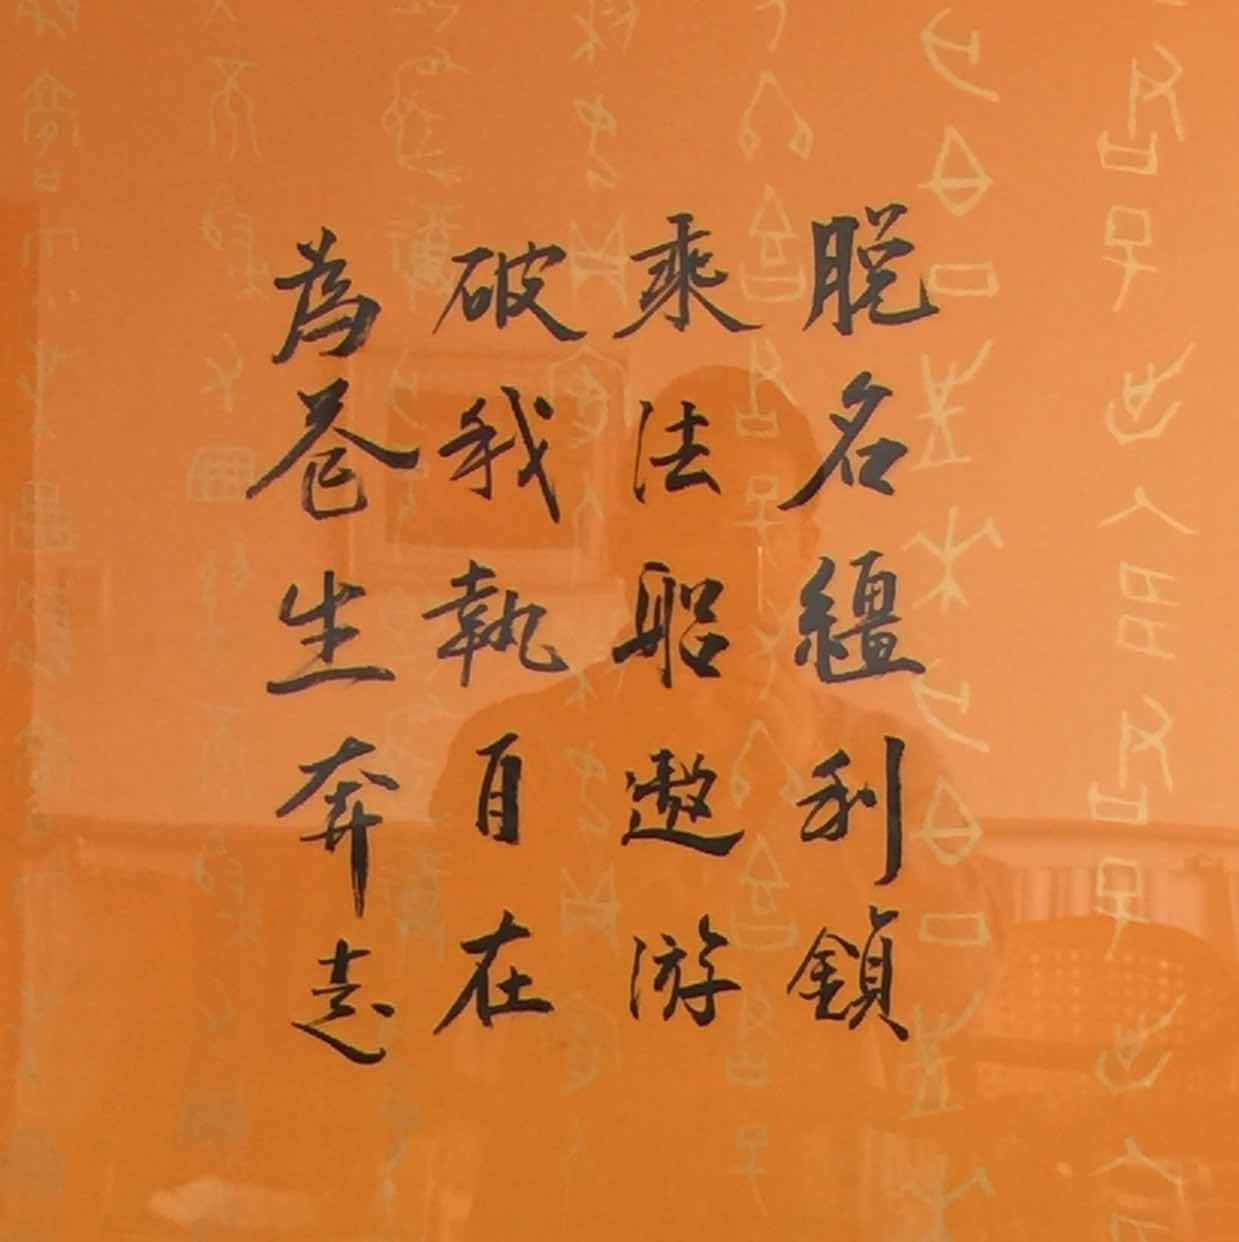 脱名繮利鎖
乘法船遨游
破我執自在
為苍生奔走